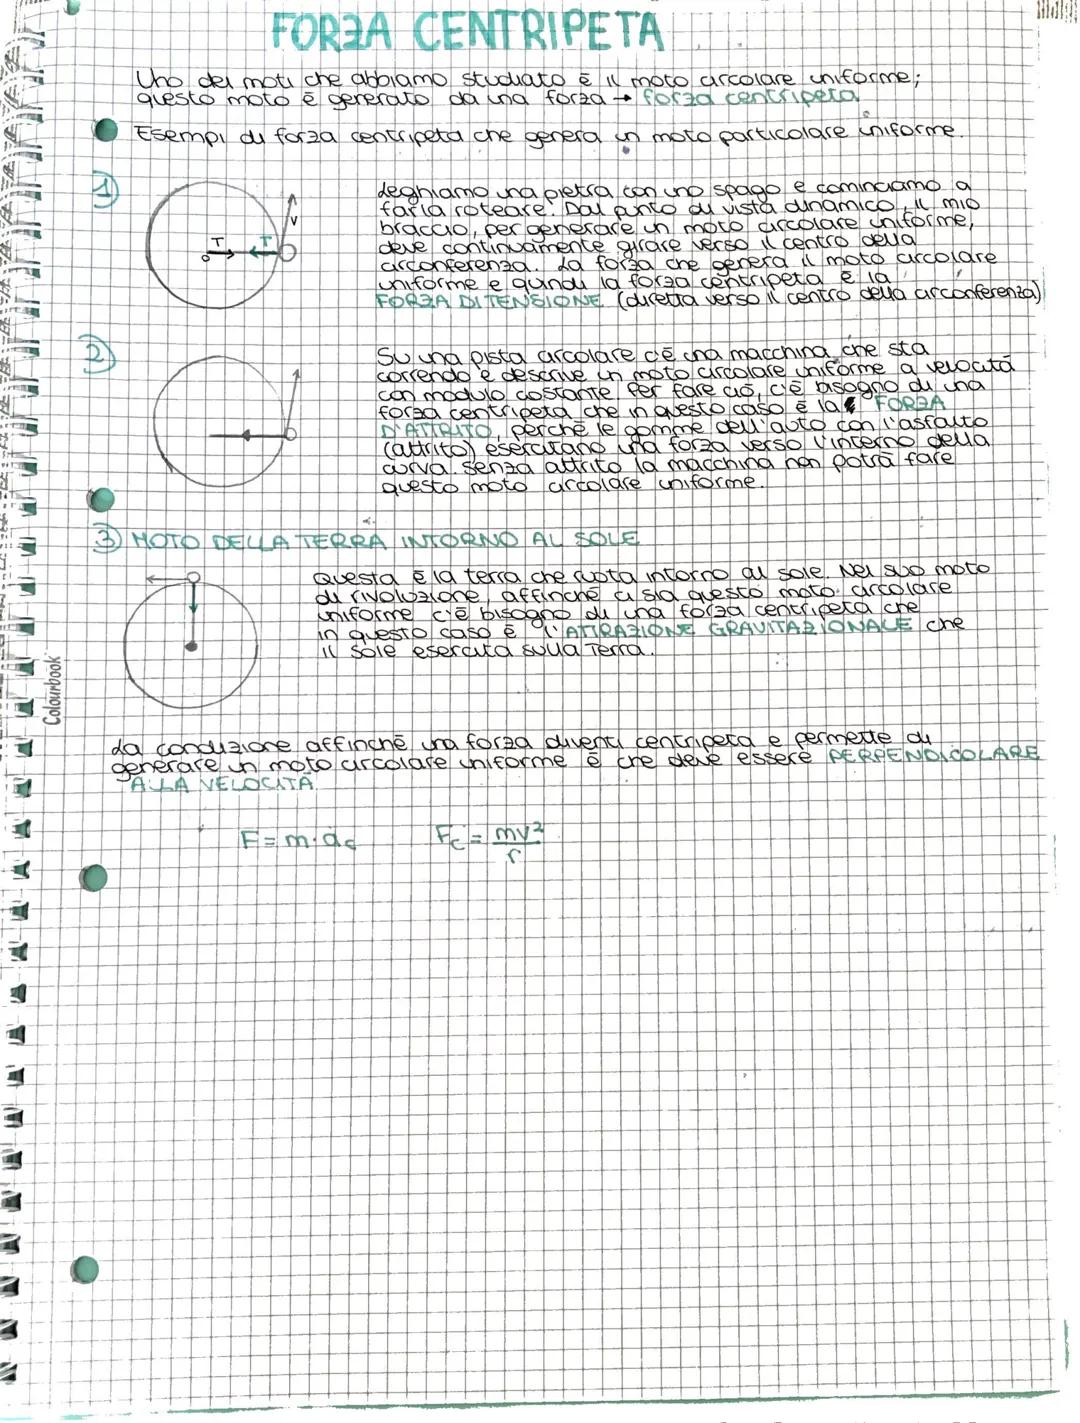 FORZA CENTRIPETA
Uno dei moti che abbiamo studiato è il moto circolare uniforme;
questo moto è generato da una forza → forza centripeta
Esempi di forza centripeta che genera un moto particolare uniforme.
1)
leghiamo una pietra con uno spago e cominciamo a
farla roteare. Dal punto di vista dinamico, il mio
braccio, per generare un moto circolare uniforme,
deve continuamente girare verso il centro della
circonferenza. La forza che genera il moto circolare
uniforme e quindi la forza centripeta è la
FORZA DI TENSIONE (diretta verso il centro della circonferenza)
T T v
2)
Su una pista circolare c'è una macchina che sta
correndo e descrive un moto circolare uniforme a velocità
con modulo costante. Per fare ciò, c'è bisogno di una
forza centripeta che in questo caso è la FORZA
D'ATTRITO, perchè le gomme dell'auto con l'asfalto
(attrito) esercitano una forza verso l'interno della
curva. Senza attrito la macchina non potrà fare
questo moto circolare uniforme.
3) MOTO DELLA TERRA INTORNO AL SOLE
Questa è la terra che ruota intorno al sole. Nel suo moto
di rivoluzione, affinchè ci sia questo moto circolare
uniforme c'è bisogno di una forza centripeta che
in questo caso è l'ATTRAZIONE GRAVITAZIONALE che
il sole esercita sulla Terra.
Colourbook
La condizione affinchè una forza diventi centripeta e permette di
generare un moto circolare uniforme è che deve essere PERPENDICOLARE
ALLA VELOCITÀ
F = m·ac Fc = mv²/r